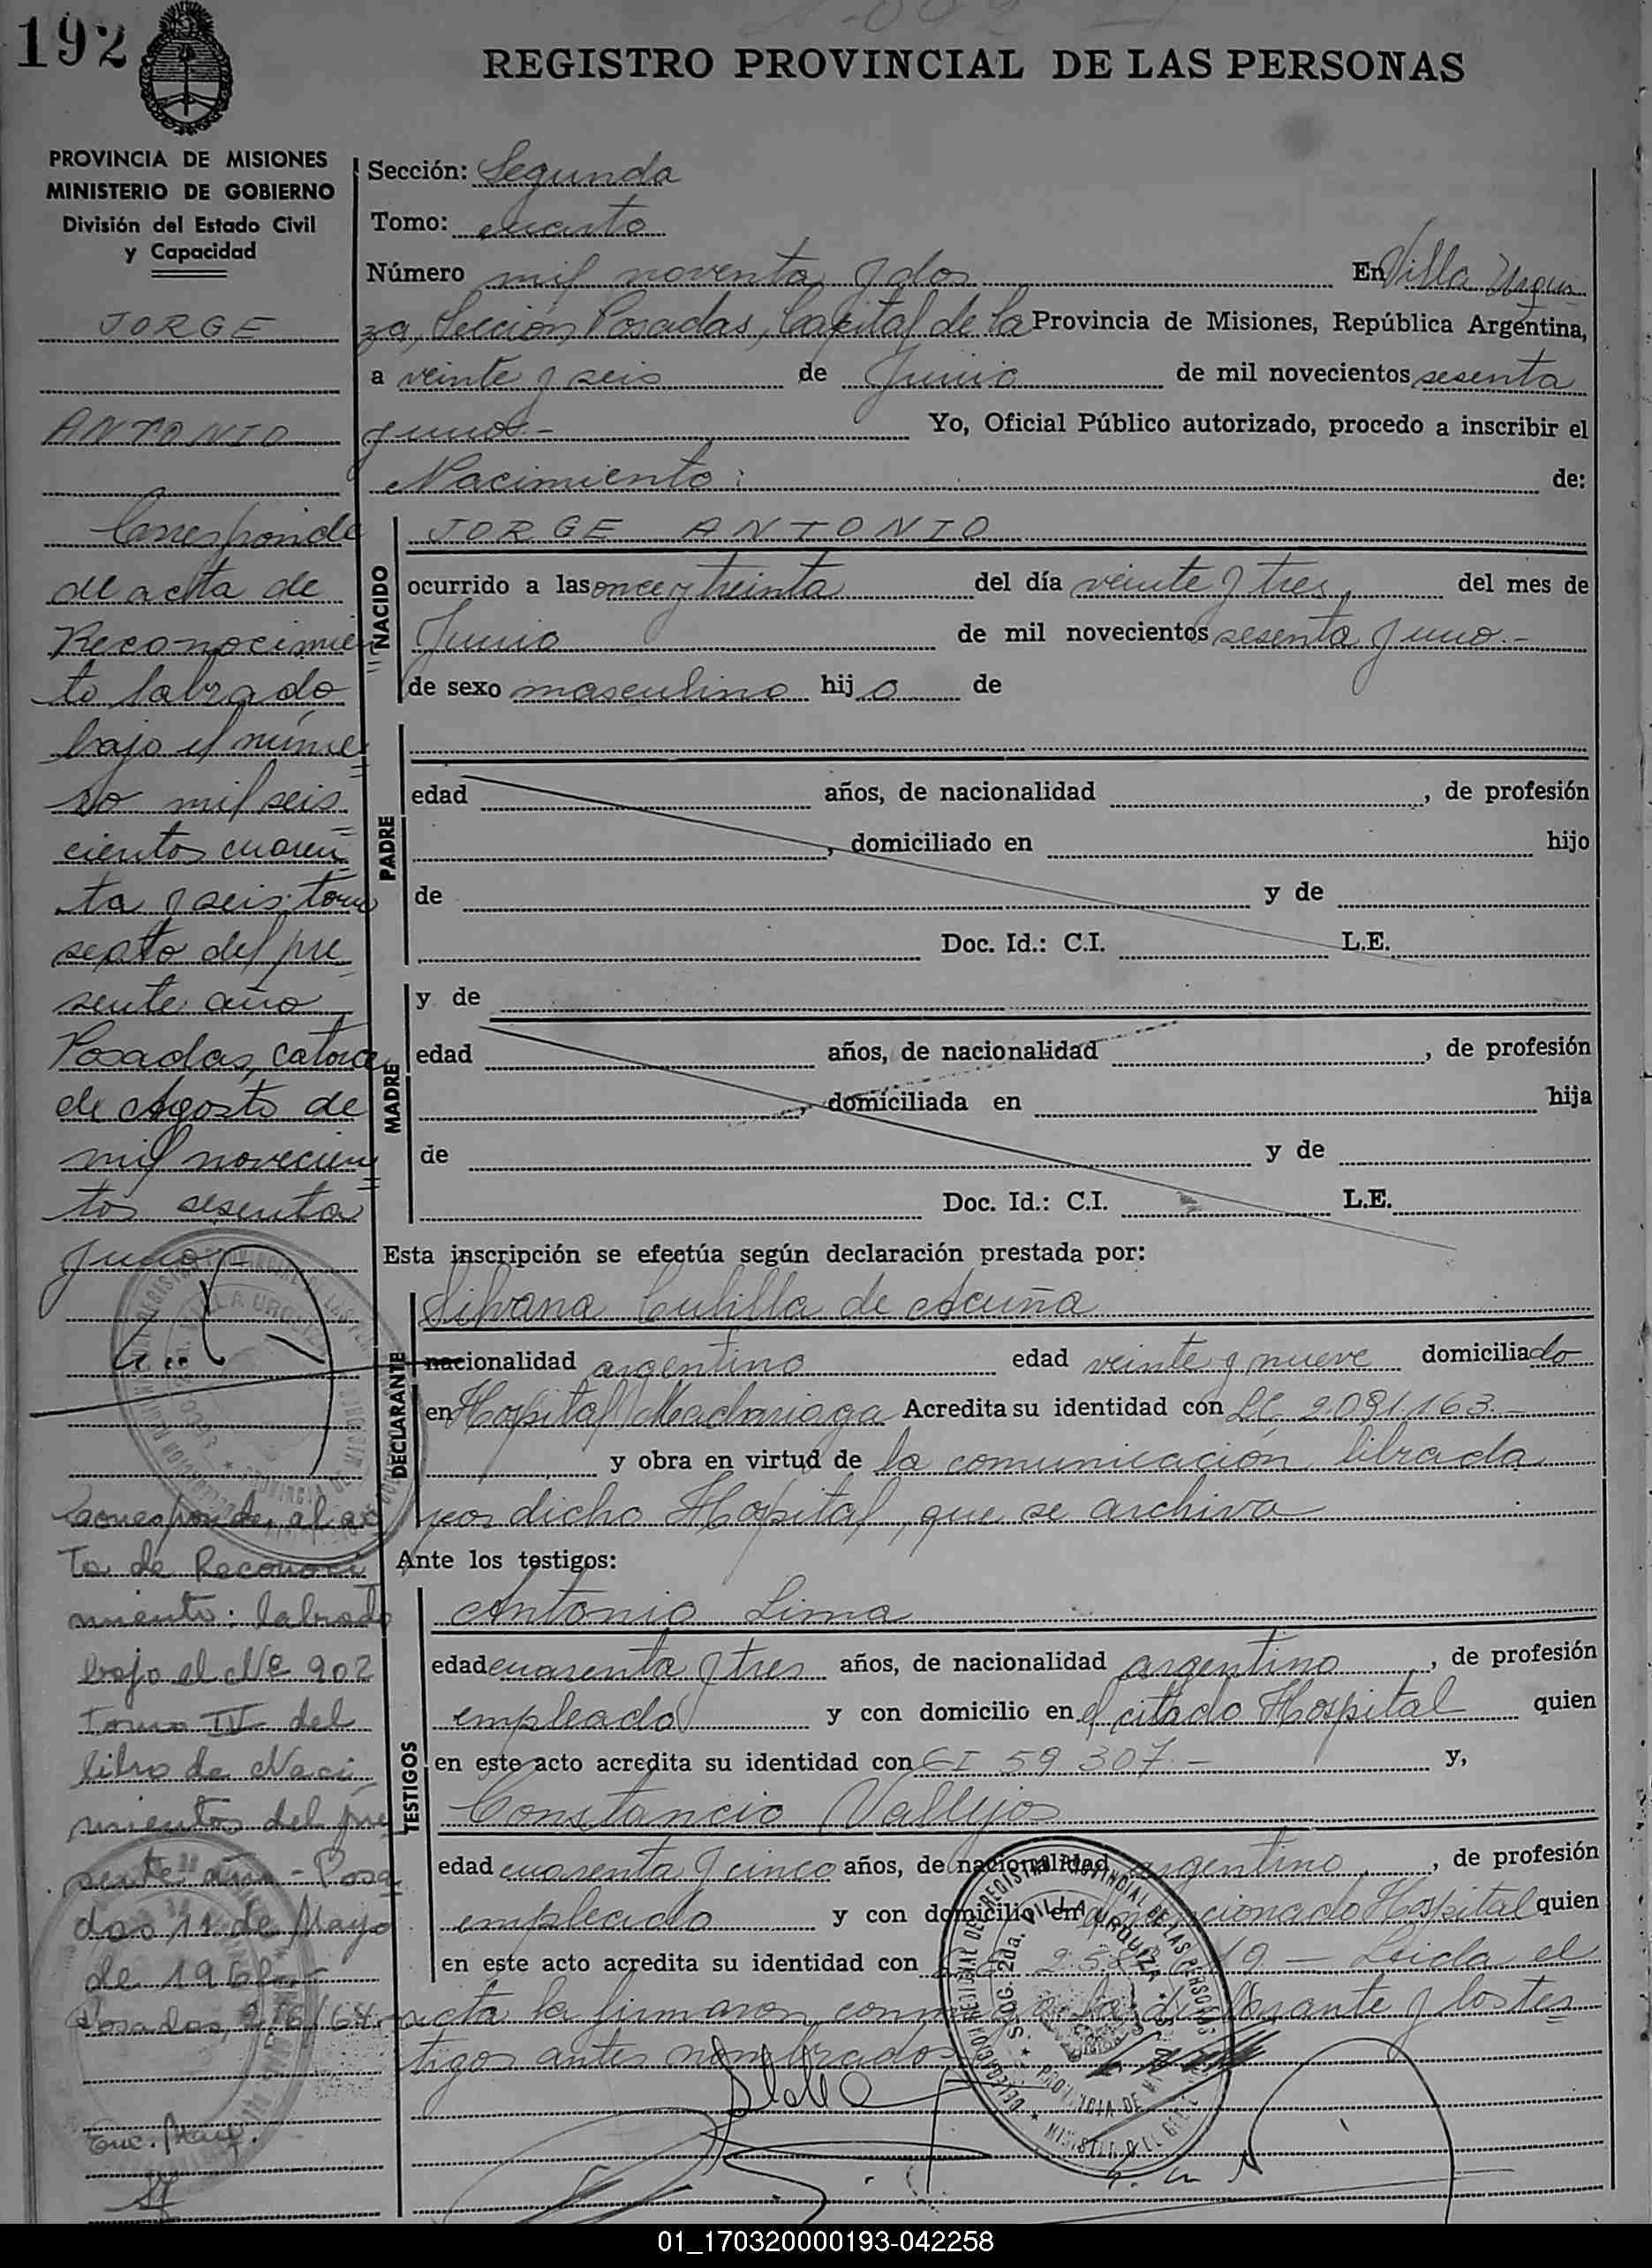 192
REGISTRO PROVINCIAL DE LAS PERSONAS
PROVINCIA DE MISIONES
MINISTERIO DE GOBIERNO
División del Estado Civil
y Capacidad
JORGE
ANTONIO
Corresponde
al acta de
Reconocimien
to labrado
bajo el núme
ro mil seis
cientos cuaren
ta y seis tomo
sexto del pre
sente año
Posadas, catorce
de Agosto de
mil novecien
tos sesenta
y uno
Corresponde al ac
ta de Reconoci
miento: labrado
bajo el Nº 902
Tomo IV del
libro de Naci
mientos del pre
sente año - Posa
das 11 de Mayo
de 196
Posadas, 2/6/64
Sección: Segunda
Tomo: cuarto
Número mil noventa y dos En Villa Urqui
za, Sección Posadas, Capital de la Provincia de Misiones, República Argentina,
a veinte y seis de Junio de mil novecientos sesenta
y uno.- Yo, Oficial Público autorizado, procedo a inscribir el
Nacimiento: de:
NACIDO
JORGE ANTONIO
ocurrido a las once y treinta del día veinte y tres, del mes de
Junio de mil novecientos sesenta y uno.-
de sexo masculino hijo de
PADRE
edad años, de nacionalidad , de profesión
, domiciliado en hijo
de y de
Doc. Id.: C.I. L.E.
MADRE
y de
edad años, de nacionalidad , de profesión
, domiciliada en hija
de y de
Doc. Id.: C.I. L.E.
Esta inscripción se efectúa según declaración prestada por:
DECLARANTE
Silvana Cubilla de Acuña
nacionalidad argentino edad veinte y nueve domiciliado
en Hospital Madariaga Acredita su identidad con LC 2.081.163.-
y obra en virtud de la comunicación librada
por dicho Hospital, que se archiva
Ante los testigos:
TESTIGOS
Antonio Lima
edad cuarenta y tres años, de nacionalidad argentino , de profesión
empleado y con domicilio en el citado Hospital quien
en este acto acredita su identidad con CI 59.307.- y,
Constancio Vallejos
edad cuarenta y cinco años, de nacionalidad argentino , de profesión
empleado y con domicilio en el mencionado Hospital quien
en este acto acredita su identidad con Leida el
acta la firmaron conmigo la declarante y los tes
tigos antes nombrados
DELEGACION REGIONAL DEL REGISTRO PROVINCIAL DE LAS PERSONAS
SOC. 2da. VILLA URQUIZA
PROVINCIA DE MISIONES
01_170320000193-042258